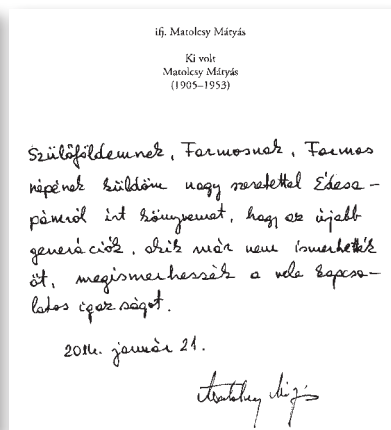 ifj. Matolcsy Mátyás
Ki volt
Matolcsy Mátyás
(1905–1953)
Szülőföldemnek, Farmosnak, Farmos
népének küldöm nagy szeretettel Édesa-
pámról írt könyvemet, hogy az újabb
generációk, akik már nem ismerhették
őt, megismerhessék a vele kapcso-
latos igazságot.
2014. január 21.
Matolcsy Mátyás